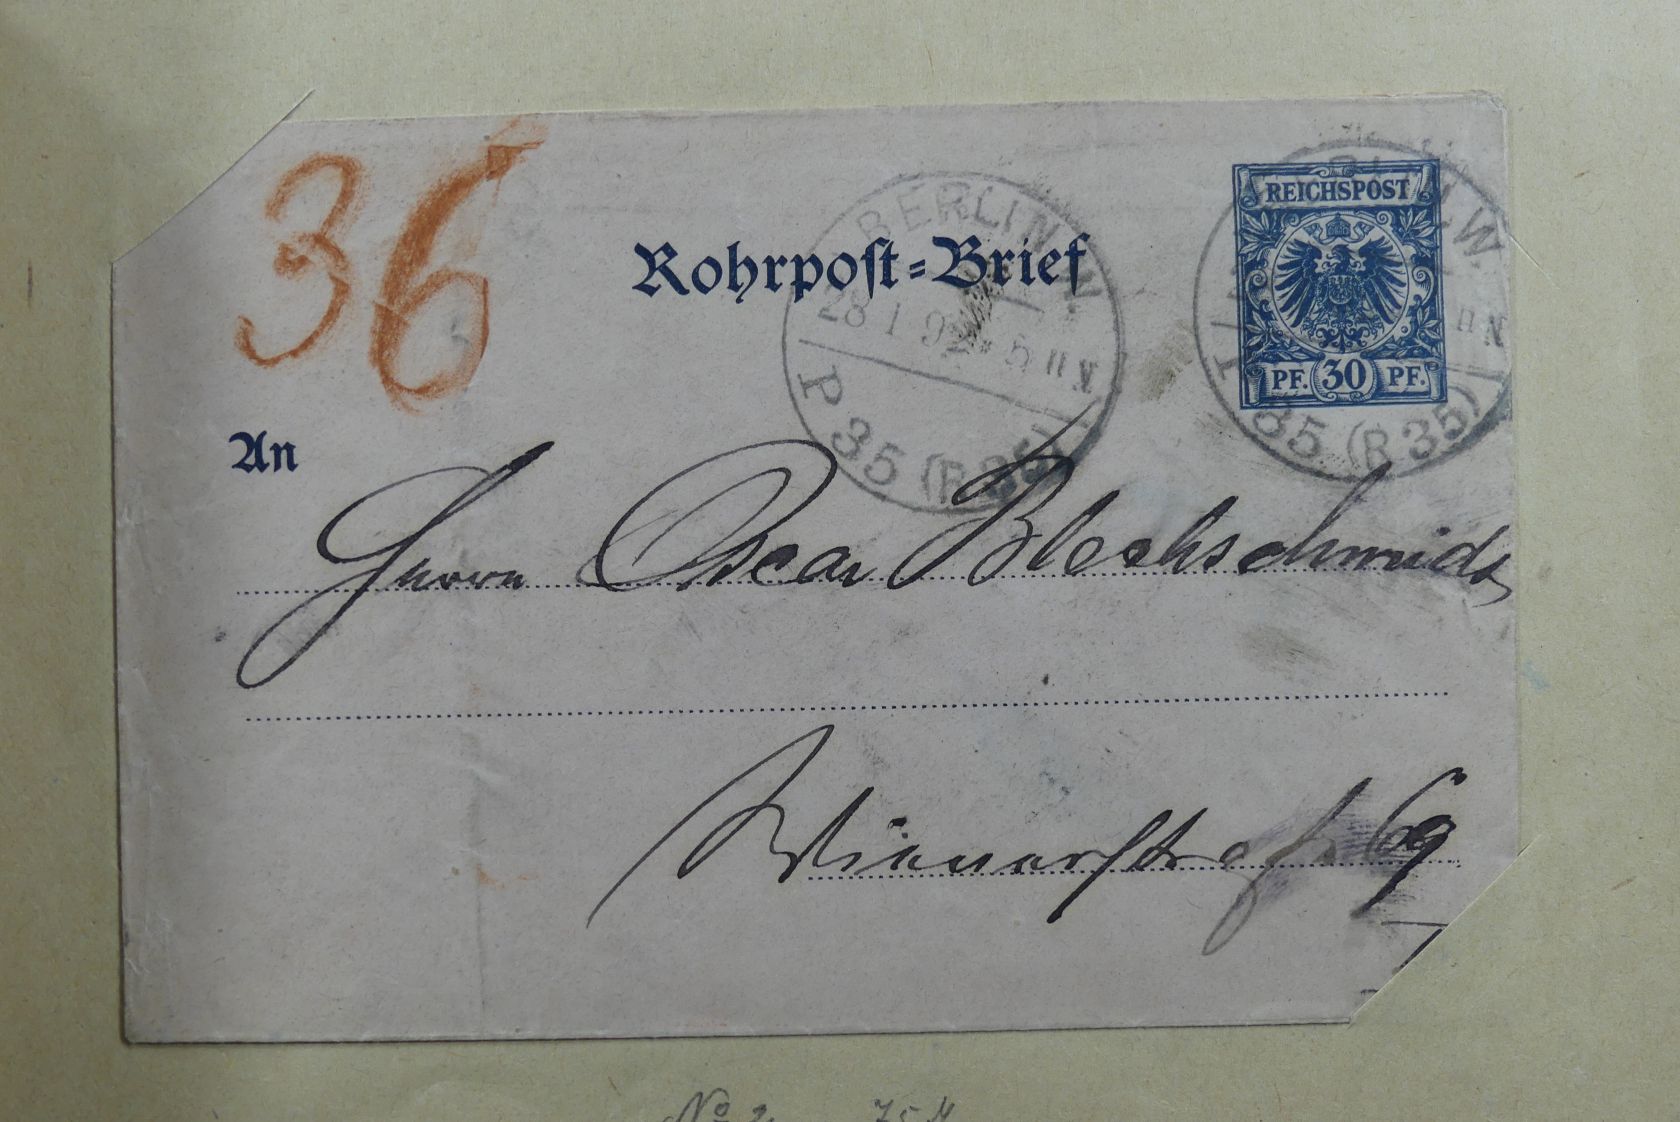 36
Rohrpost-Brief
BERLIN, W.
28 1 92 * 5 11 N.
P 35 (R 35)
W.
11 N
35 (R 35)
REICHSPOST
PF. 30 PF.
An
Herrn Oscar Blechschmidt
Wienerstraße 69
No 2 75 M